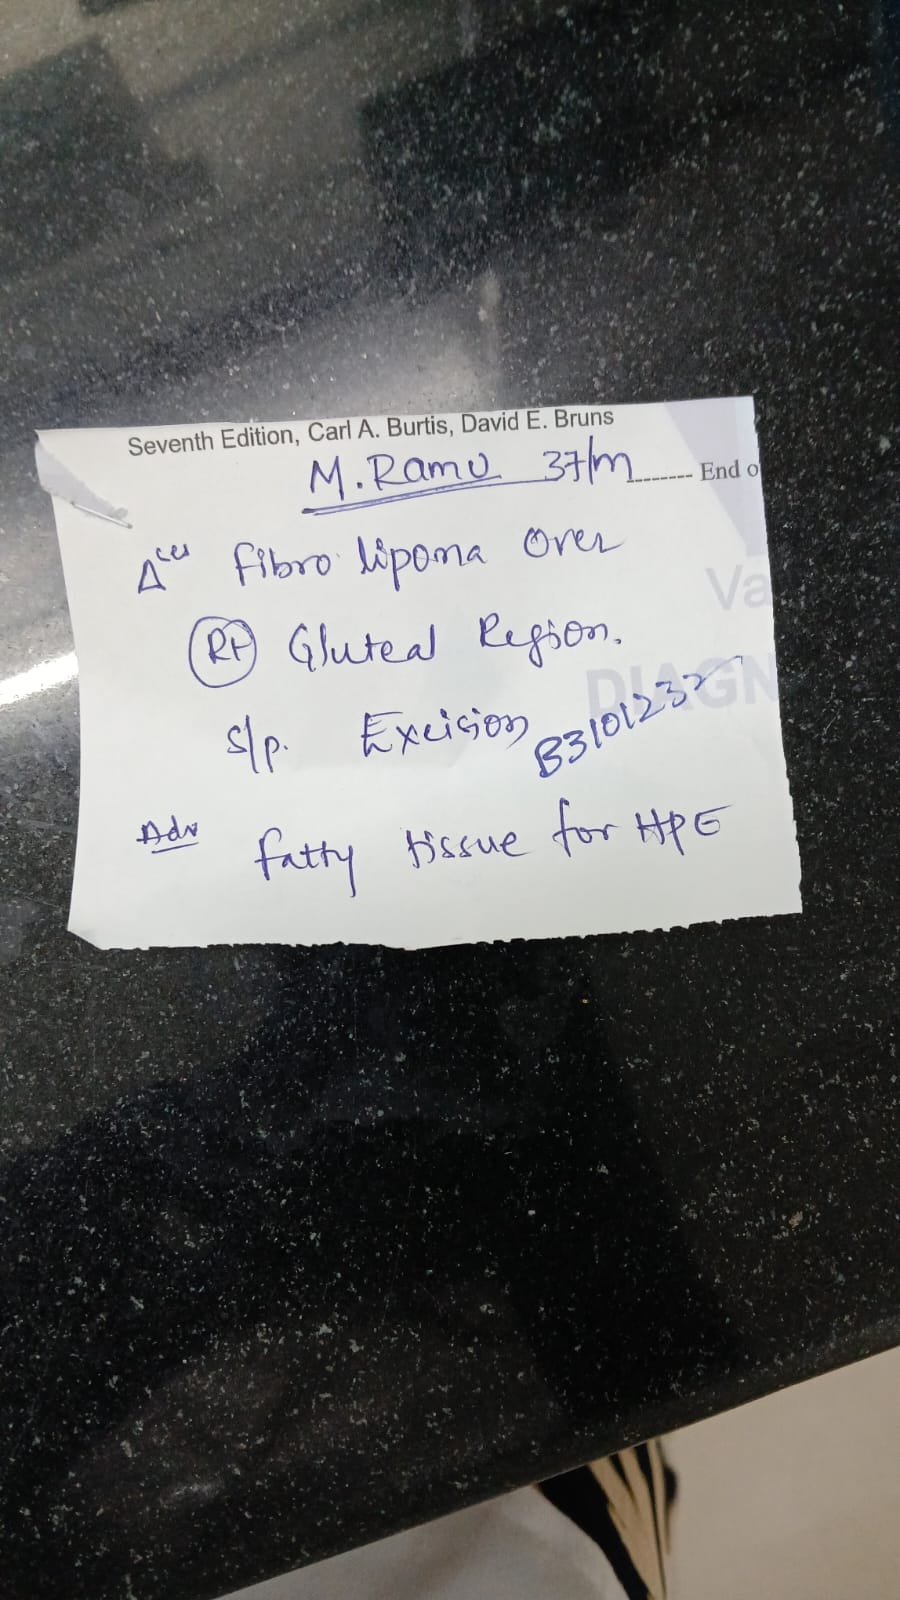 Seventh Edition, Carl A. Burtis, David E. Bruns
M. Ramu 37/m ------- End o
Δ Fibro lipoma over
Rt Gluteal Region.
Va
DIAGN
S/p. Excision
B3101232
Adv
fatty tissue for HPE